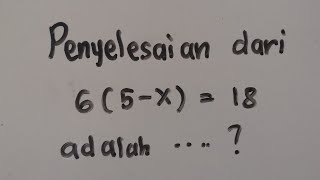 Penyelesaian dari
6(5-x) = 18
adalah .... ?